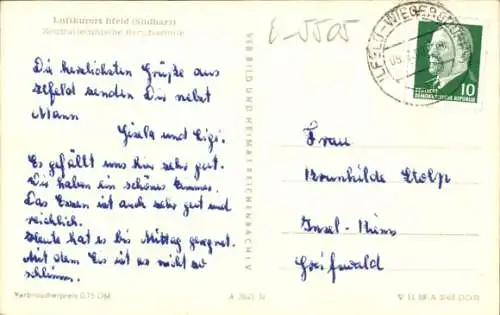 Luftkurort Ilfeld (Südharz)
E-5505
ILFELD-WIEGERSDORF
10
DEUTSCHE
DEMOKRATISCHE REPUBLIK
Die herzlichsten Grüße aus
Ilfeld senden Dir nebst
Mann
Gisela und
Es gefällt uns hier sehr gut.
Wir haben ein schönes Zimmer.
Das Essen ist auch sehr gut und
reichlich.
Heute hat es bis Mittag geregnet.
Mit dem Eis ist es nicht so
schlimm.
Verbraucherpreis 0,15 DM
VEB BILD UND HEIMAT REICHENBACH I. V.
Frau
Brunhilde Stolp
Insel-Riems
Greifswald